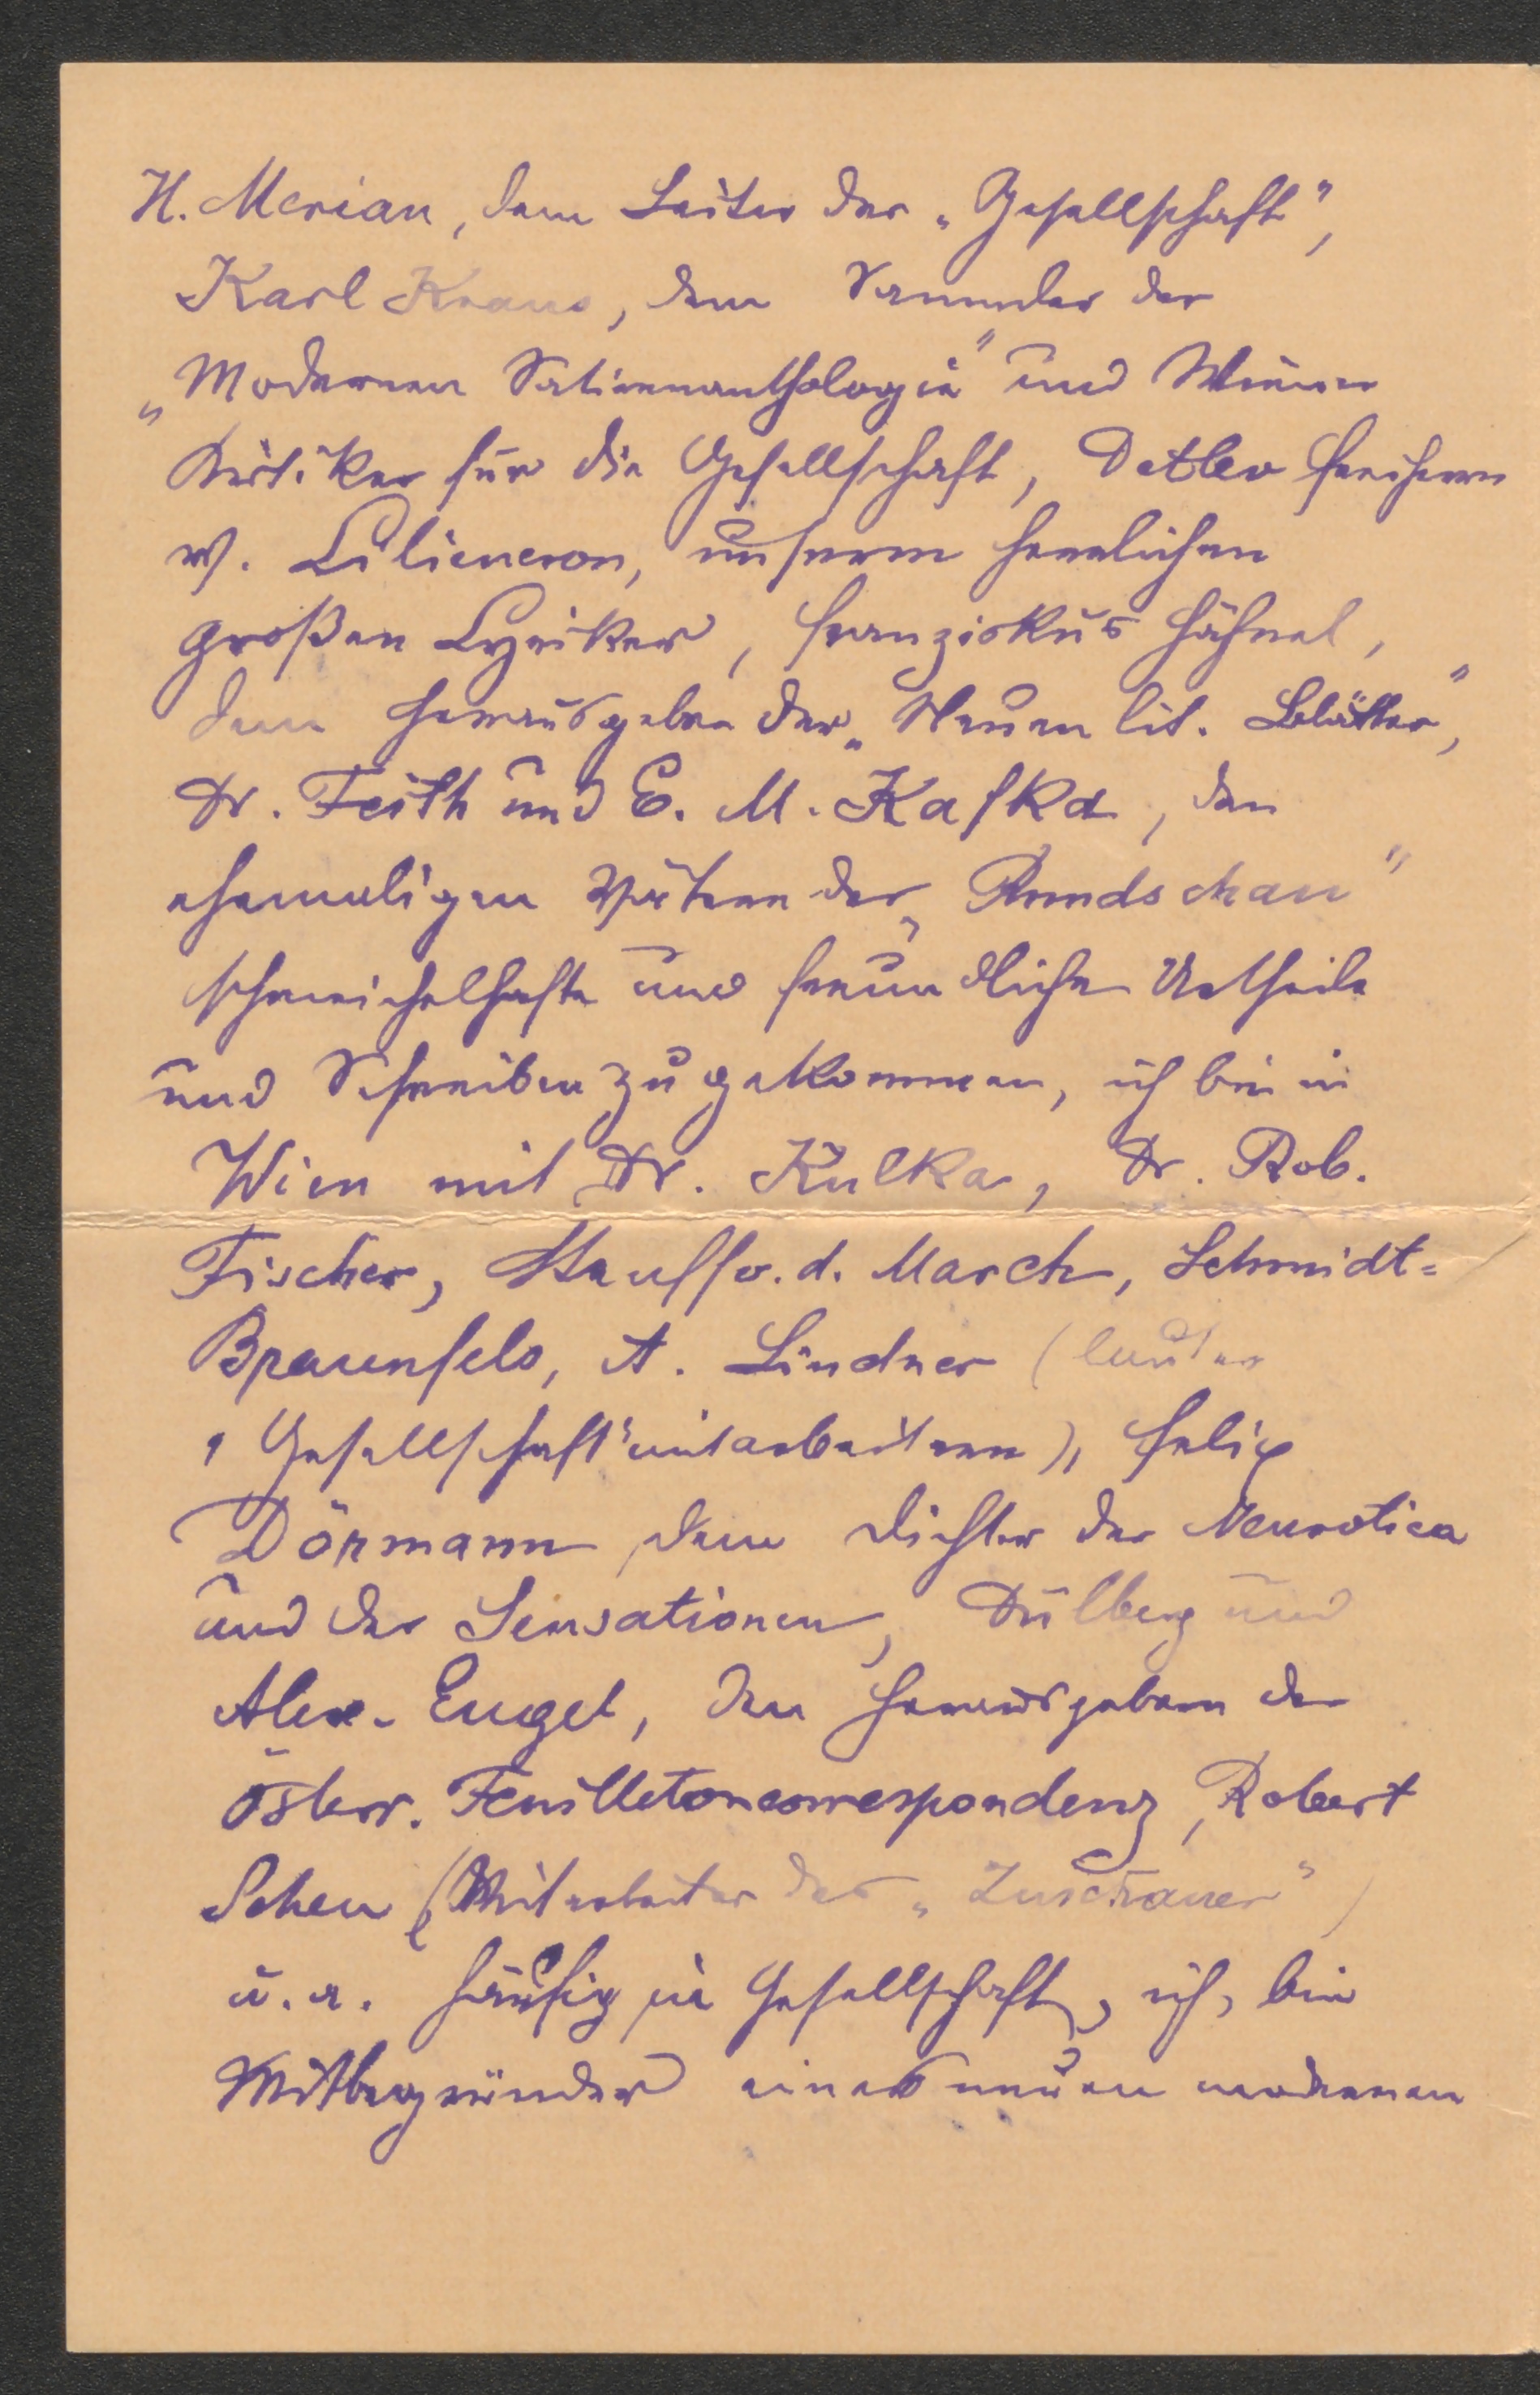 H. Merian, dem Leiter der „Gesellschaft",
Karl Kraus, dem Sammler der
„Modernen Satirenanthologie" und Wiener
Kritiker für die Gesellschaft, Detlev Freiherrn
v. Liliencron, unserm herrlichen
großen Lyriker, Franziskus Hähnel,
dem Herausgeber der „Neuen lit. Blätter",
Dr. Feith und E. M. Kafka, den
ehemaligen Vätern der „Rundschau"
schmeichelhafte und freundliche Urtheile
und Schreiben zugekommen, ich bin in
Wien mit Dr. Kulka, Dr. Rob.
Fischer, Stauf v. d. March, Schmidt=
Braunfels, A. Lindner (lauter
„Gesellschaft"mitarbeitern), Felix
Dörmann, dem Dichter der Neurotica
und der Sensationen, Dülberg und
Alex. Engel, den Herausgebern der
österr. Feuilletoncorrespondenz, Robert
Scheu (Mitarbeiter des „Zuschauer")
u. a. häufig in Gesellschaft, ich, bin
Mitbegründer eines neuen modernen